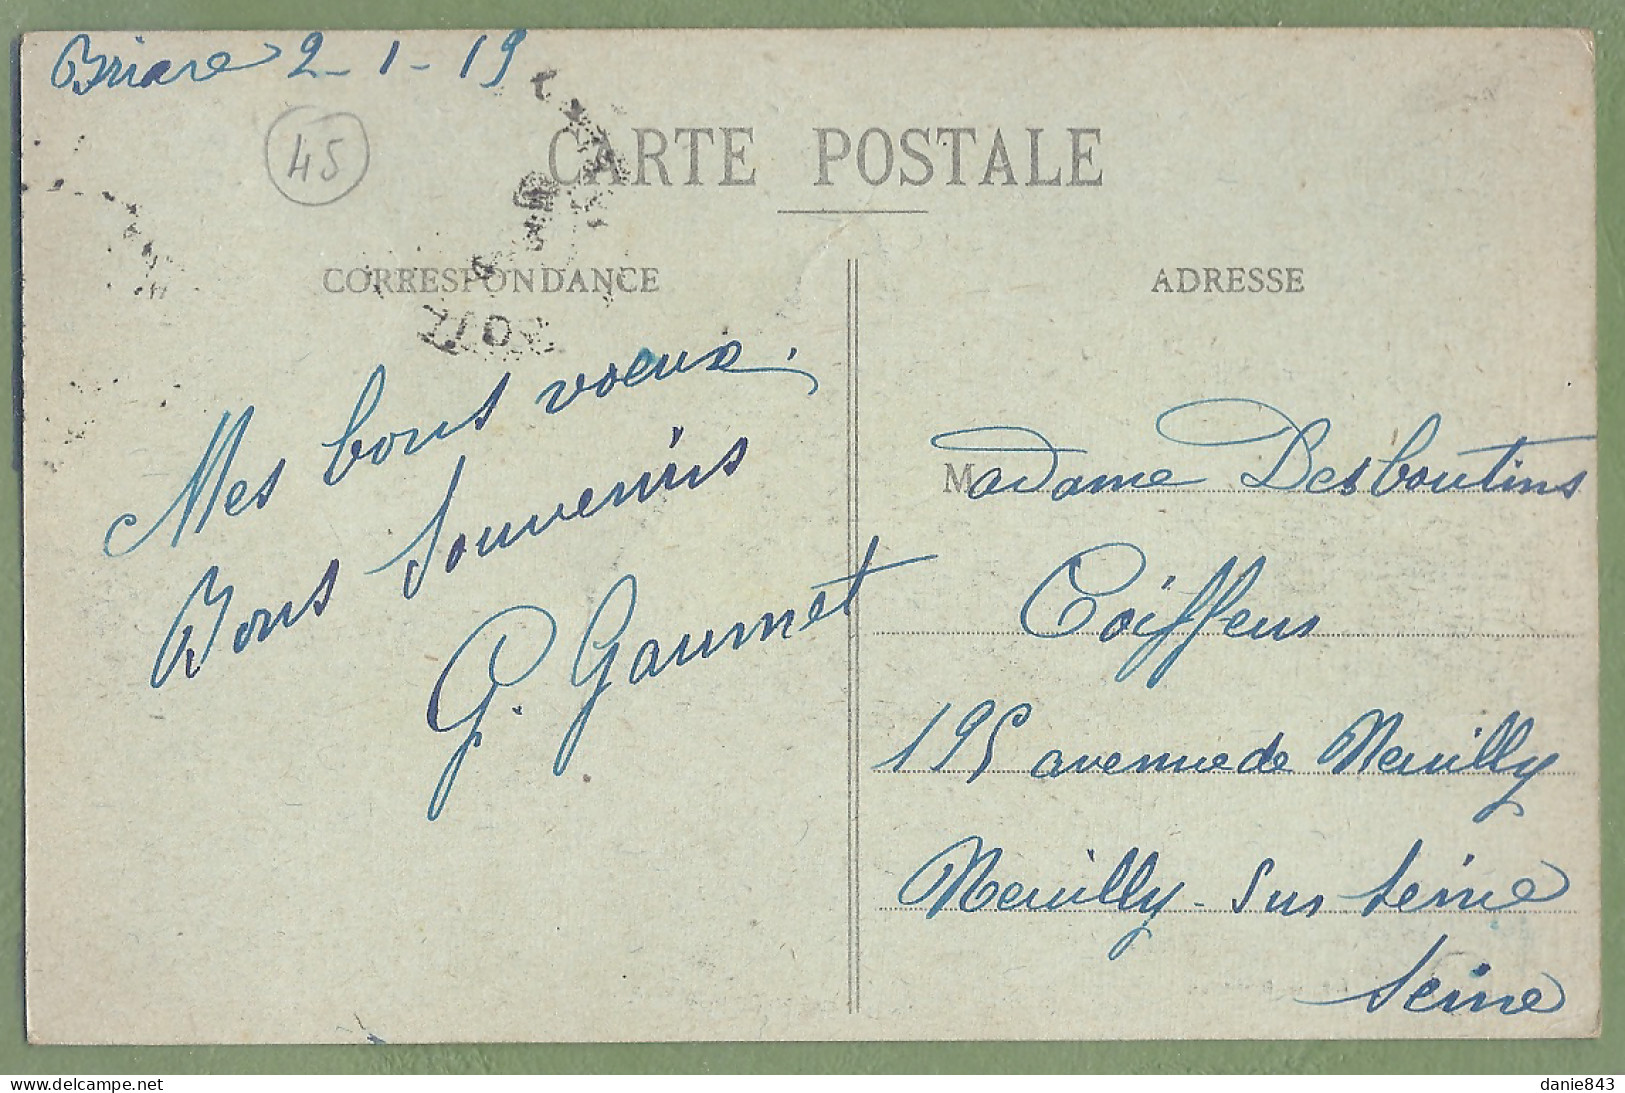 Briare 2-1-19
45
CARTE POSTALE
CORRESPONDANCE
ADRESSE
Mes bons vœux.
Bons souvenirs
G. Gaumet
Madame Desboutins
Coiffeur
195 avenue de Neuilly
Neuilly-sur Seine
Seine
danie843